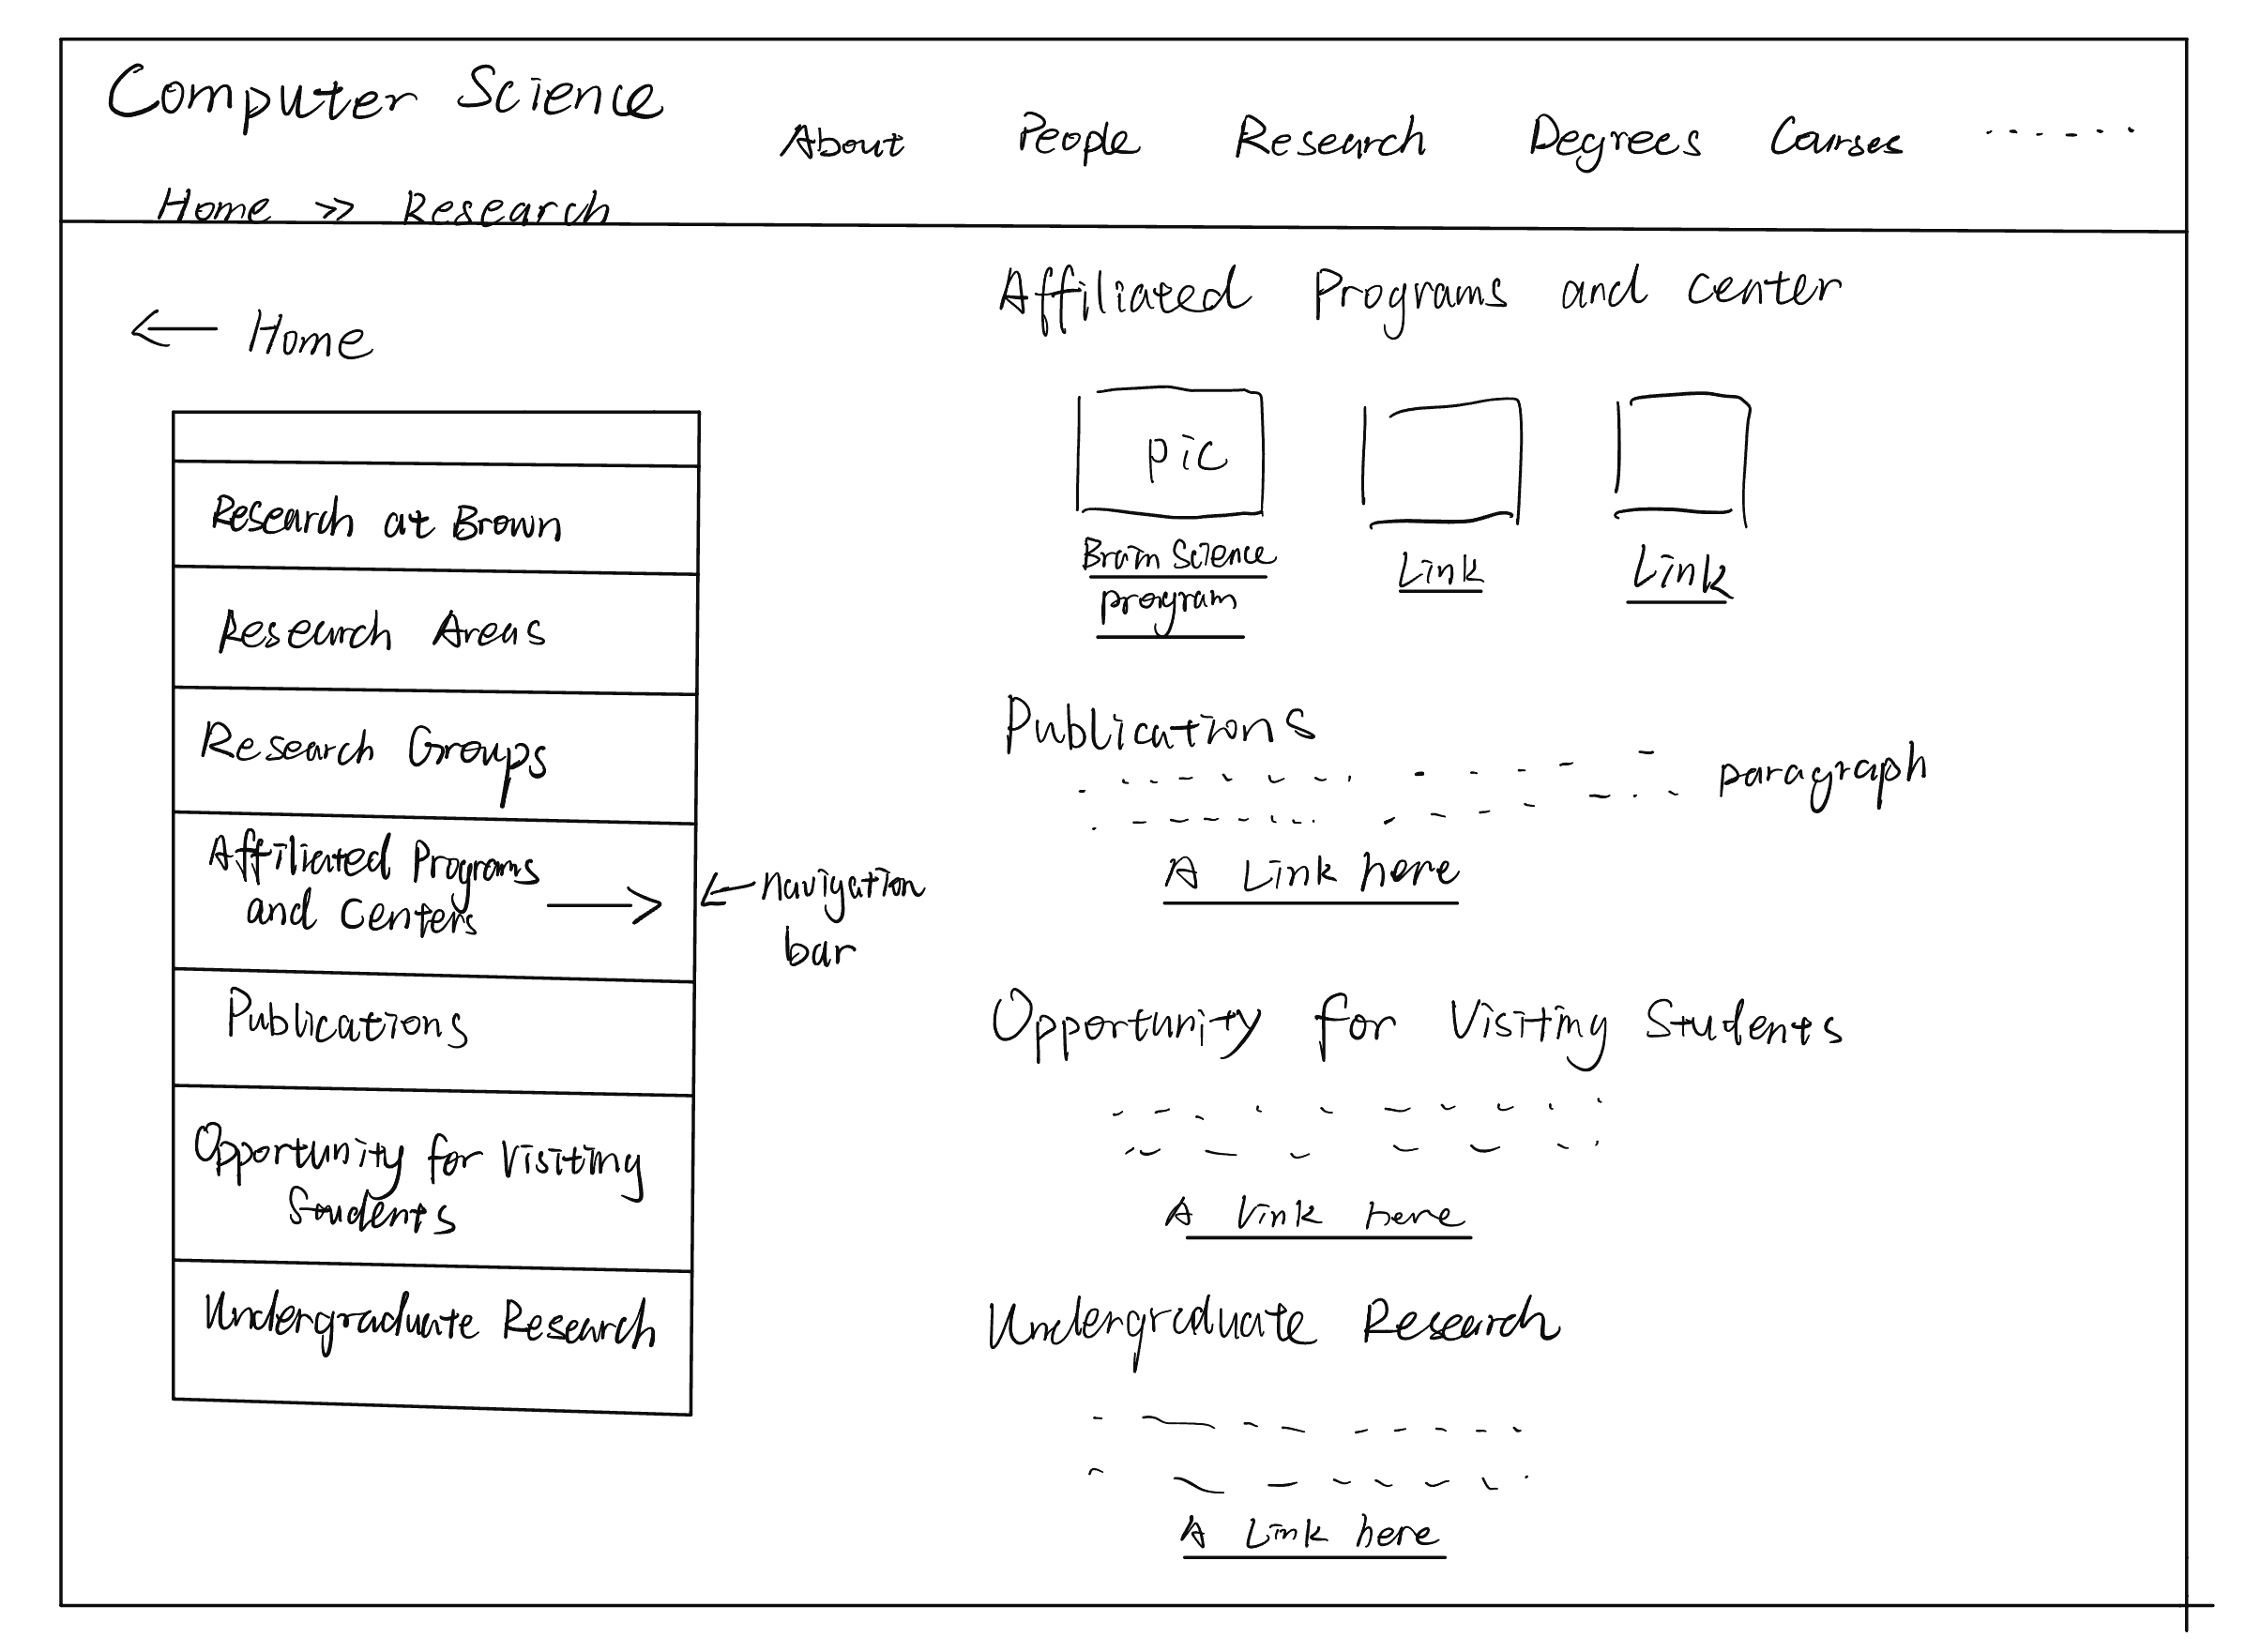 Computer Science
About People Research Degrees Courses ......
Home >> Research
← Home
Research at Brown
Research Areas
Research Groups
Affiliated Programs
and Centers →
Publications
Opportunity for Visiting
Students
Undergraduate Research
← navigation
bar
Affiliated Programs and center
pic
Brain Science
program
Link
Link
Publications
paragraph
A Link here
Opportunity for Visiting Students
A Link here
Undergraduate Research
A Link here